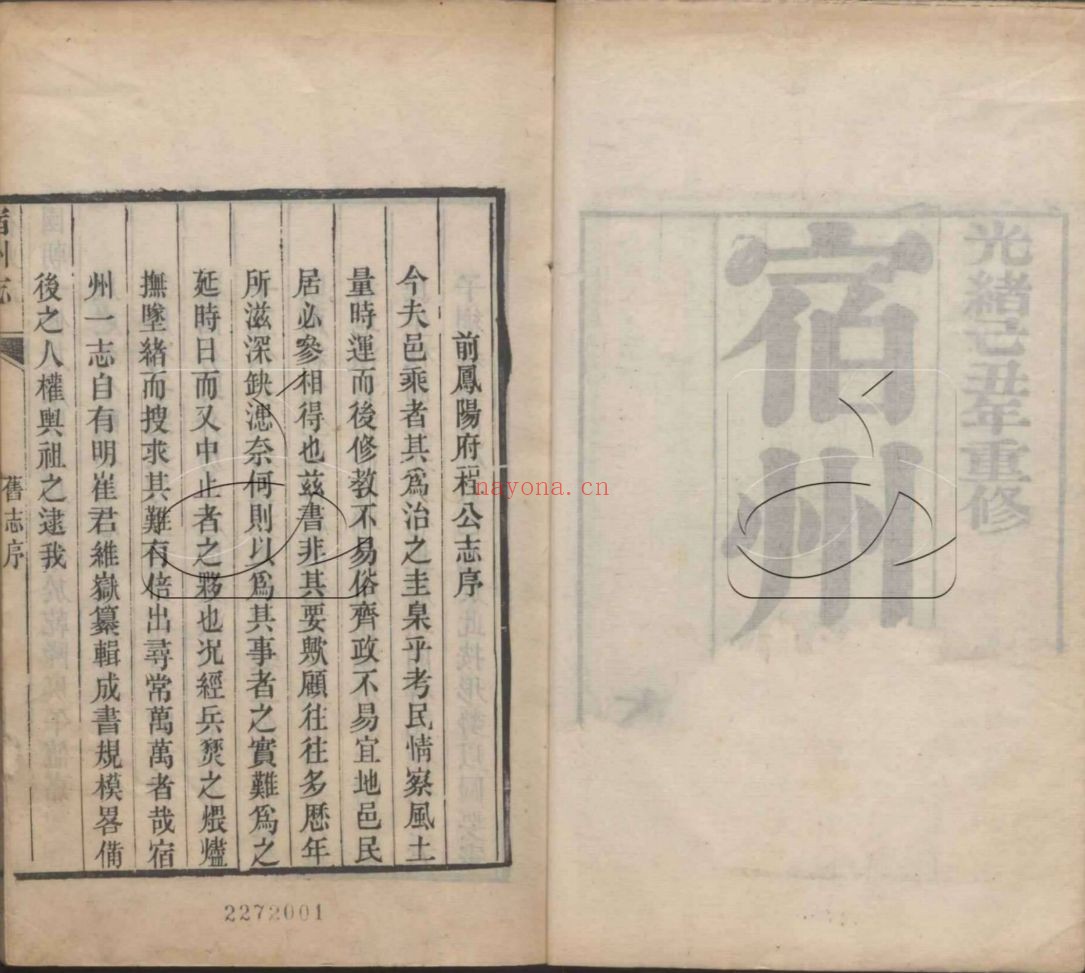 光緒己丑年重修
宿州
前鳳陽府程公志序
今夫邑乘者其爲治之圭臬乎考民情察風土
量時運而後修教不易俗齊政不易宜地邑民
居必參相得也茲書非其要歟顧往往多歷年
所滋深缺漶奈何則以爲其事者之實難爲之
延時日而又中止者之夥也況經兵燹之煨燼
撫墜緒而搜求其難有倍出尋常萬萬者哉宿
州一志自有明崔君維嶽纂輯成書規模畧備
後之人權輿祖之逮我
宿州志
舊志序
nayona.cn
2272001